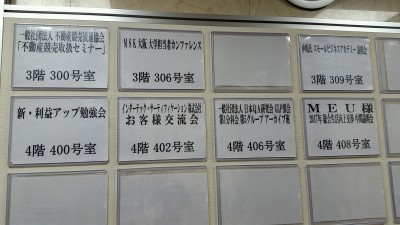 一般社団法人 不動産競売流通協会
「不動産競売取扱セミナー」
3階 300号室
MSK大阪 大学担当者カンファレンス
3階 306号室
スモールビジネスアカデミー
3階 309号室
新・利益アップ勉強会
4階 400号室
インターテック・サーティフィケーション 株式会社
お客様交流会
4階 402号室
一般社団法人 日本QA研究会
第1分科会 第5グループ アーカイブ班
4階 406号室
MEU様
4階 408号室